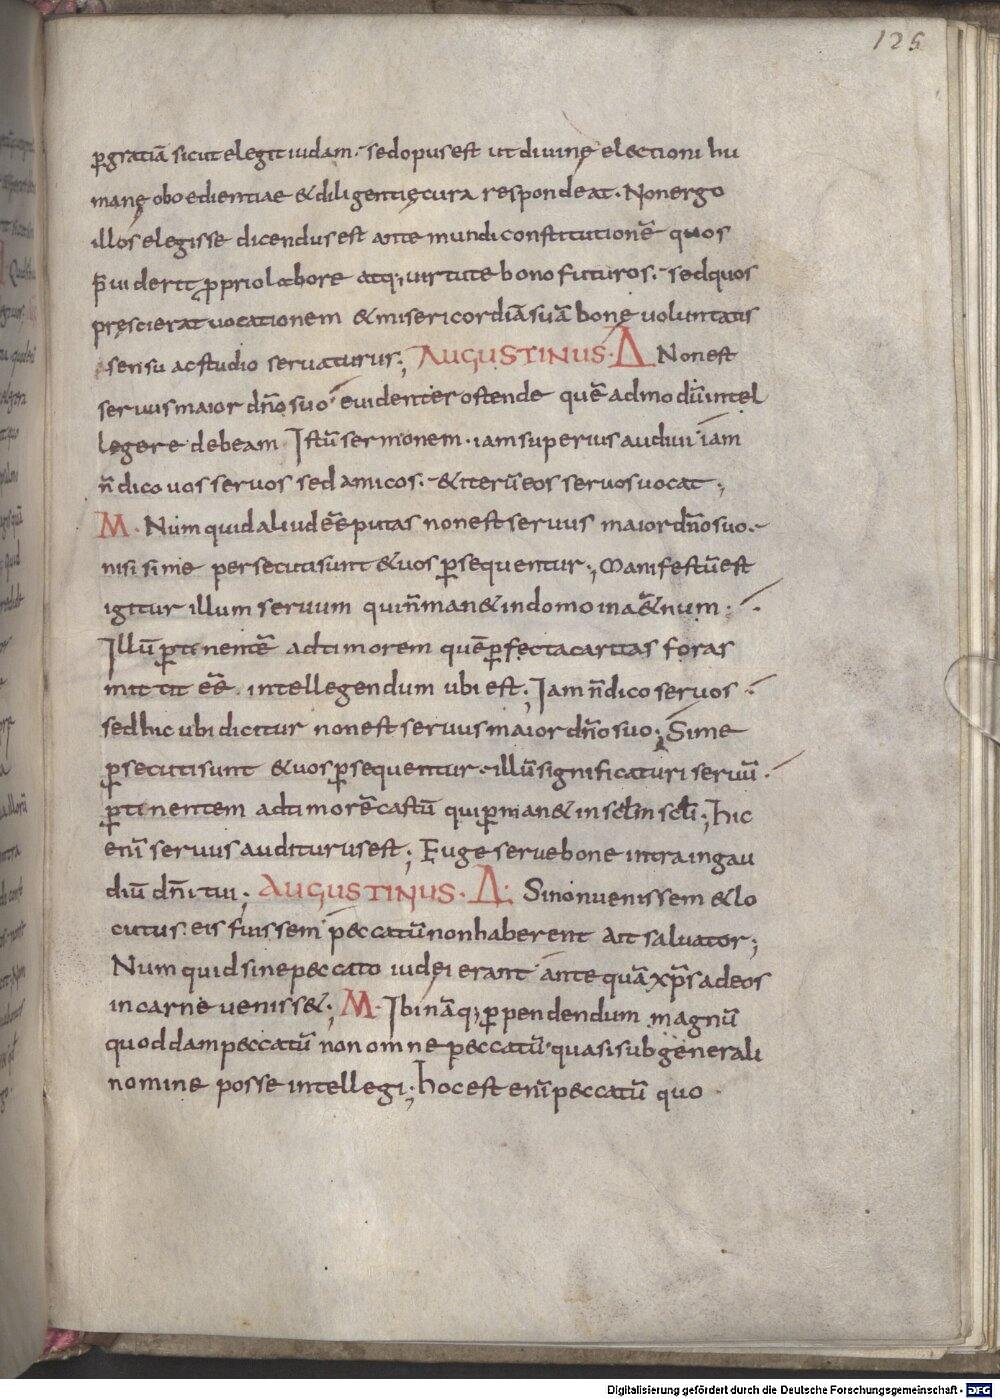 125
ꝑgratiā sicut elegit iudam. sed opus est ut diuinę electioni hu
manę oboedientiae & diligentię cura respondeat. Non ergo
illos elegisse dicendus est ante mundi constitutionē quos
p̄uiderit ꝓprio labore atq; uirtute bono futuros. sed quos
pręscierat uocationem & misericordiā suā bonę uoluntatis
sensu ac studio seruaturus; AUGUSTINUS. Δ Non est
seruus maior dn̄o suo euidenter ostende quē ad modū intel
legere debeam Istū sermonem. iam superius audiui iam
n̄ dico uos seruos sed amicos. & iterū eos seruos uocat;
M. Num quid aliud eē putas non est seruus maior dn̄o suo.
nisi si me persecuti sunt & uos ꝑsequentur; Manifestū est
igitur illum seruum qui n̄ man& in domo in aet̄num;
Illū ꝑtinentē ad timorem quē ꝑfecta caritas foras
mittit eē. intellegendum ubi est; Iam n̄ dico seruos
sed hic ubi dicitur non est seruus maior dn̄o suo; Si me
ꝑsecuti sunt & uos ꝑsequentur. illū significaturi seruū.
ꝑtinentem ad timorē castū qui ꝑman& in sclm̄ scli; hic
enī seruus auditurus est; Euge serue bone intra in gau
diū dn̄i tui; AUGUSTINUS. Δ: Si non uenissem & lo
cutus eis fuissem peccatū non haberent ait saluator;
Num quid sine peccato iudei erant ante quā xp̄s ad eos
in carne uenisset; M. Ibi nāq; ꝑpendendum magnū
quoddam peccatū non omne peccatū quasi sub generali
nomine posse intellegi; hoc est enī peccatū quo
Digitalisierung gefördert durch die Deutsche Forschungsgemeinschaft - DFG